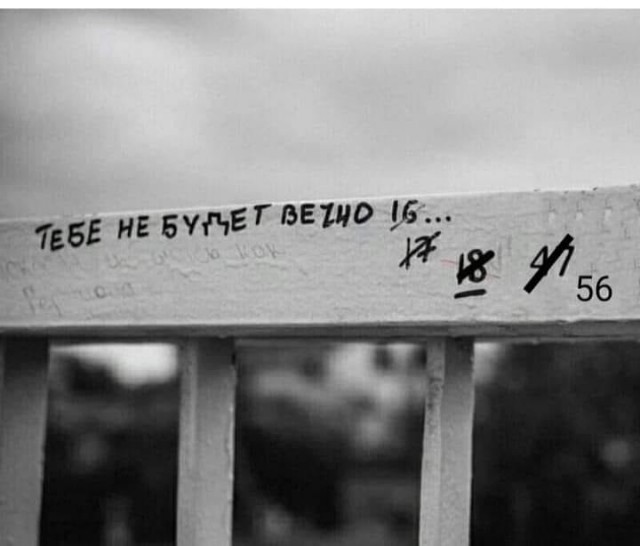 ТЕБЕ НЕ БУДЕТ ВЕЧНО 16...
17 18 41 56